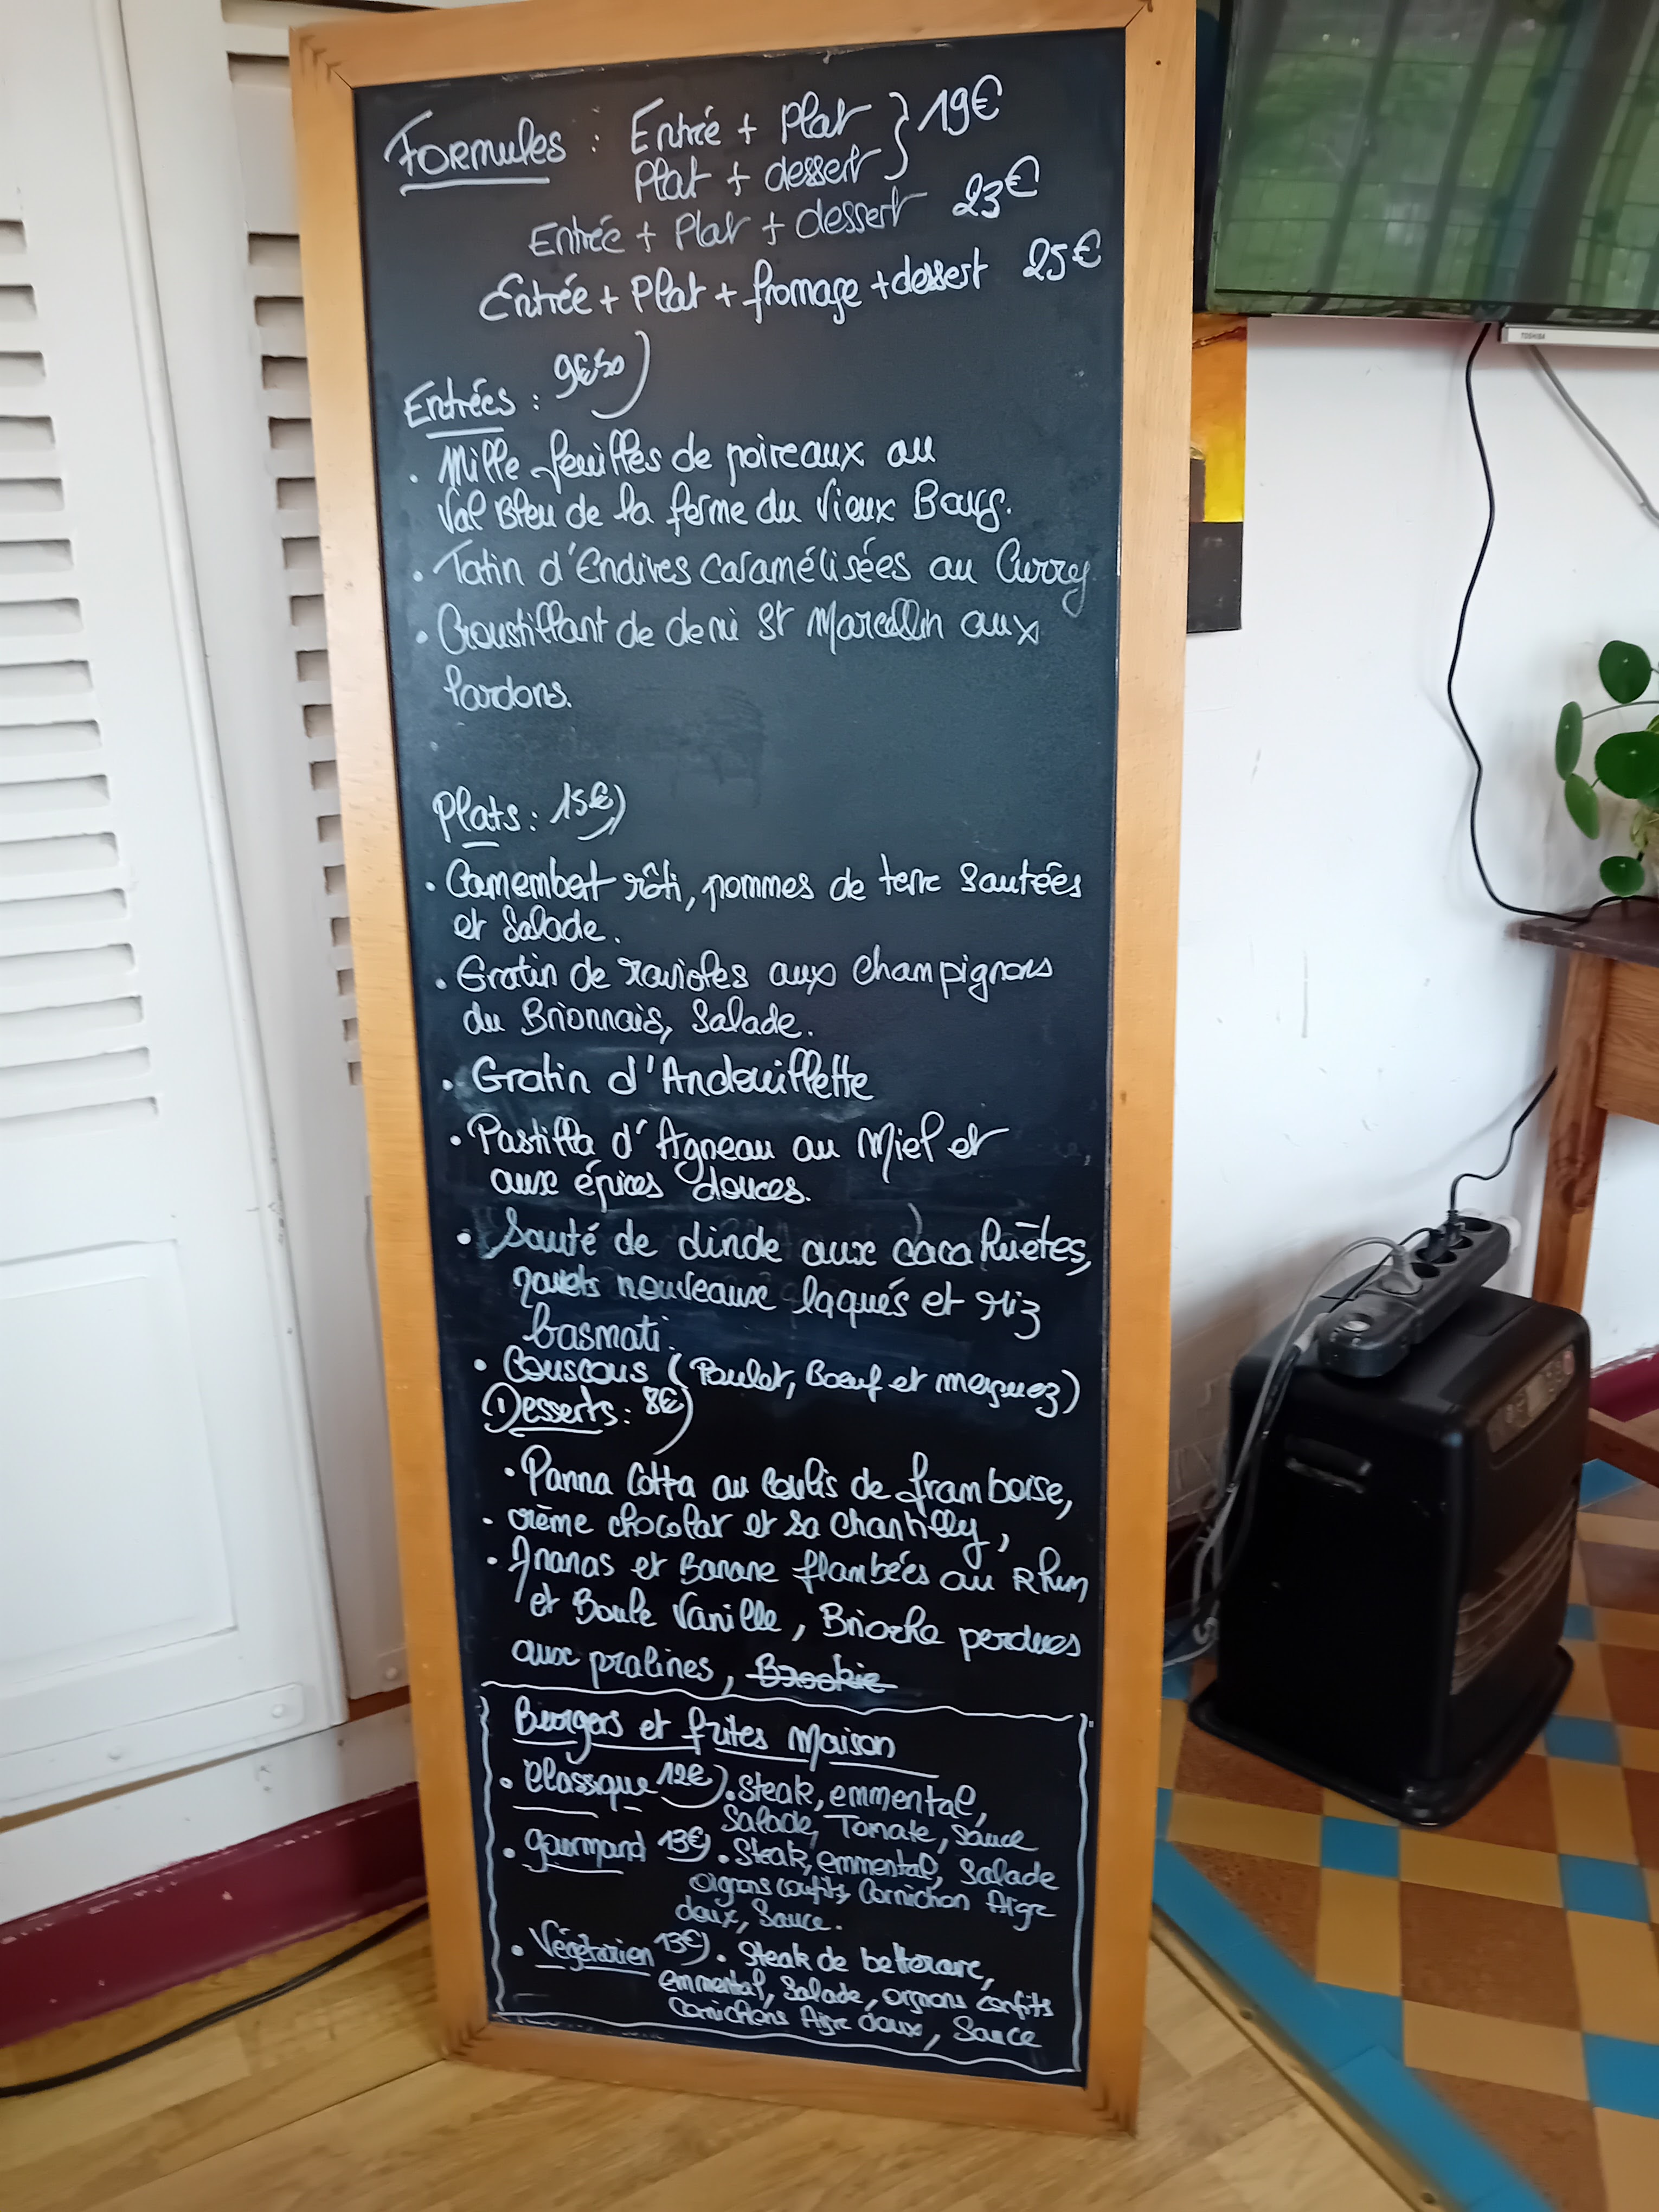 Formules : Entrée + Plat } 19€
Plat + dessert
Entrée + Plat + dessert 23€
Entrée + Plat + fromage + dessert 25€
Entrées : 9€50
. Mille feuilles de poireaux au
Val Bleu de la ferme du Vieux Bourg.
. Tatin d'Endives caramélisées au Curry
. Croustillant de demi St Marcellin aux
lardons.
Plats : 15€
. Camembert rôti, pommes de terre sautées
et salade.
. Gratin de ravioles aux champignons
du Brionnais, Salade.
. Gratin d'Andouillette
. Pastilla d'Agneau au Miel et
aux épices douces.
. Sauté de dinde aux cacahuètes,
navets nouveaux laqués et riz
basmati.
. Couscous (Poulet, Boeuf et merguez)
Desserts : 8€
. Panna Cotta au coulis de framboise,
. crème chocolat et sa chantilly,
. Ananas et Banane flambées au Rhum
et Boule Vanille, Brioche perdues
aux pralines, Brookie
Burgers et frites Maison
. Classique 12€ . Steak, emmental,
Salade, Tomate, Sauce
. Gourmand 13€ . Steak, emmental, Salade
oignons confits, Cornichon Aigre
doux, Sauce.
. Végétarien 13€ . Steak de betterave,
emmental, Salade, oignons confits
Cornichons Aigre doux, Sauce
TOSHIBA